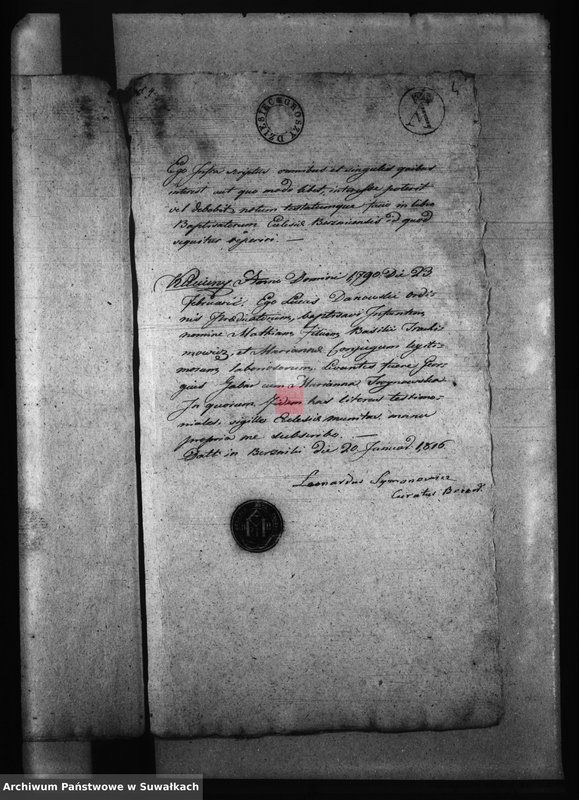 4
DZIESIĘĆ GROSZY
Ego Infra scriptus omnibus et singulis quibus
interest aut quo modo libet, interesse poterit
vel debebit, notum testatumque facio in libro
Baptisatorum Eclesiæ Berznicensis id quod
sequitur reperiri. —
Anno Domini 1790 Die 23
Februarii. Ego Lucas Danowski Ordi-
nis Prædicatorum, baptisavi Infantem
nomine Mathiam, Filium Basilii
et Mariannæ Conjugum legiti-
morum, laboriosorum. Levantes fuere
Gabar cum Marianna
In quorum Fidem has literas testimo-
niales, sigillo Eclesiæ munitas, manu
propria me subscribo. —
Datt: in Berzniki die 20 Januarii 1816
Leonardus Symonowicz
Curatus
Archiwum Państwowe w Suwałkach